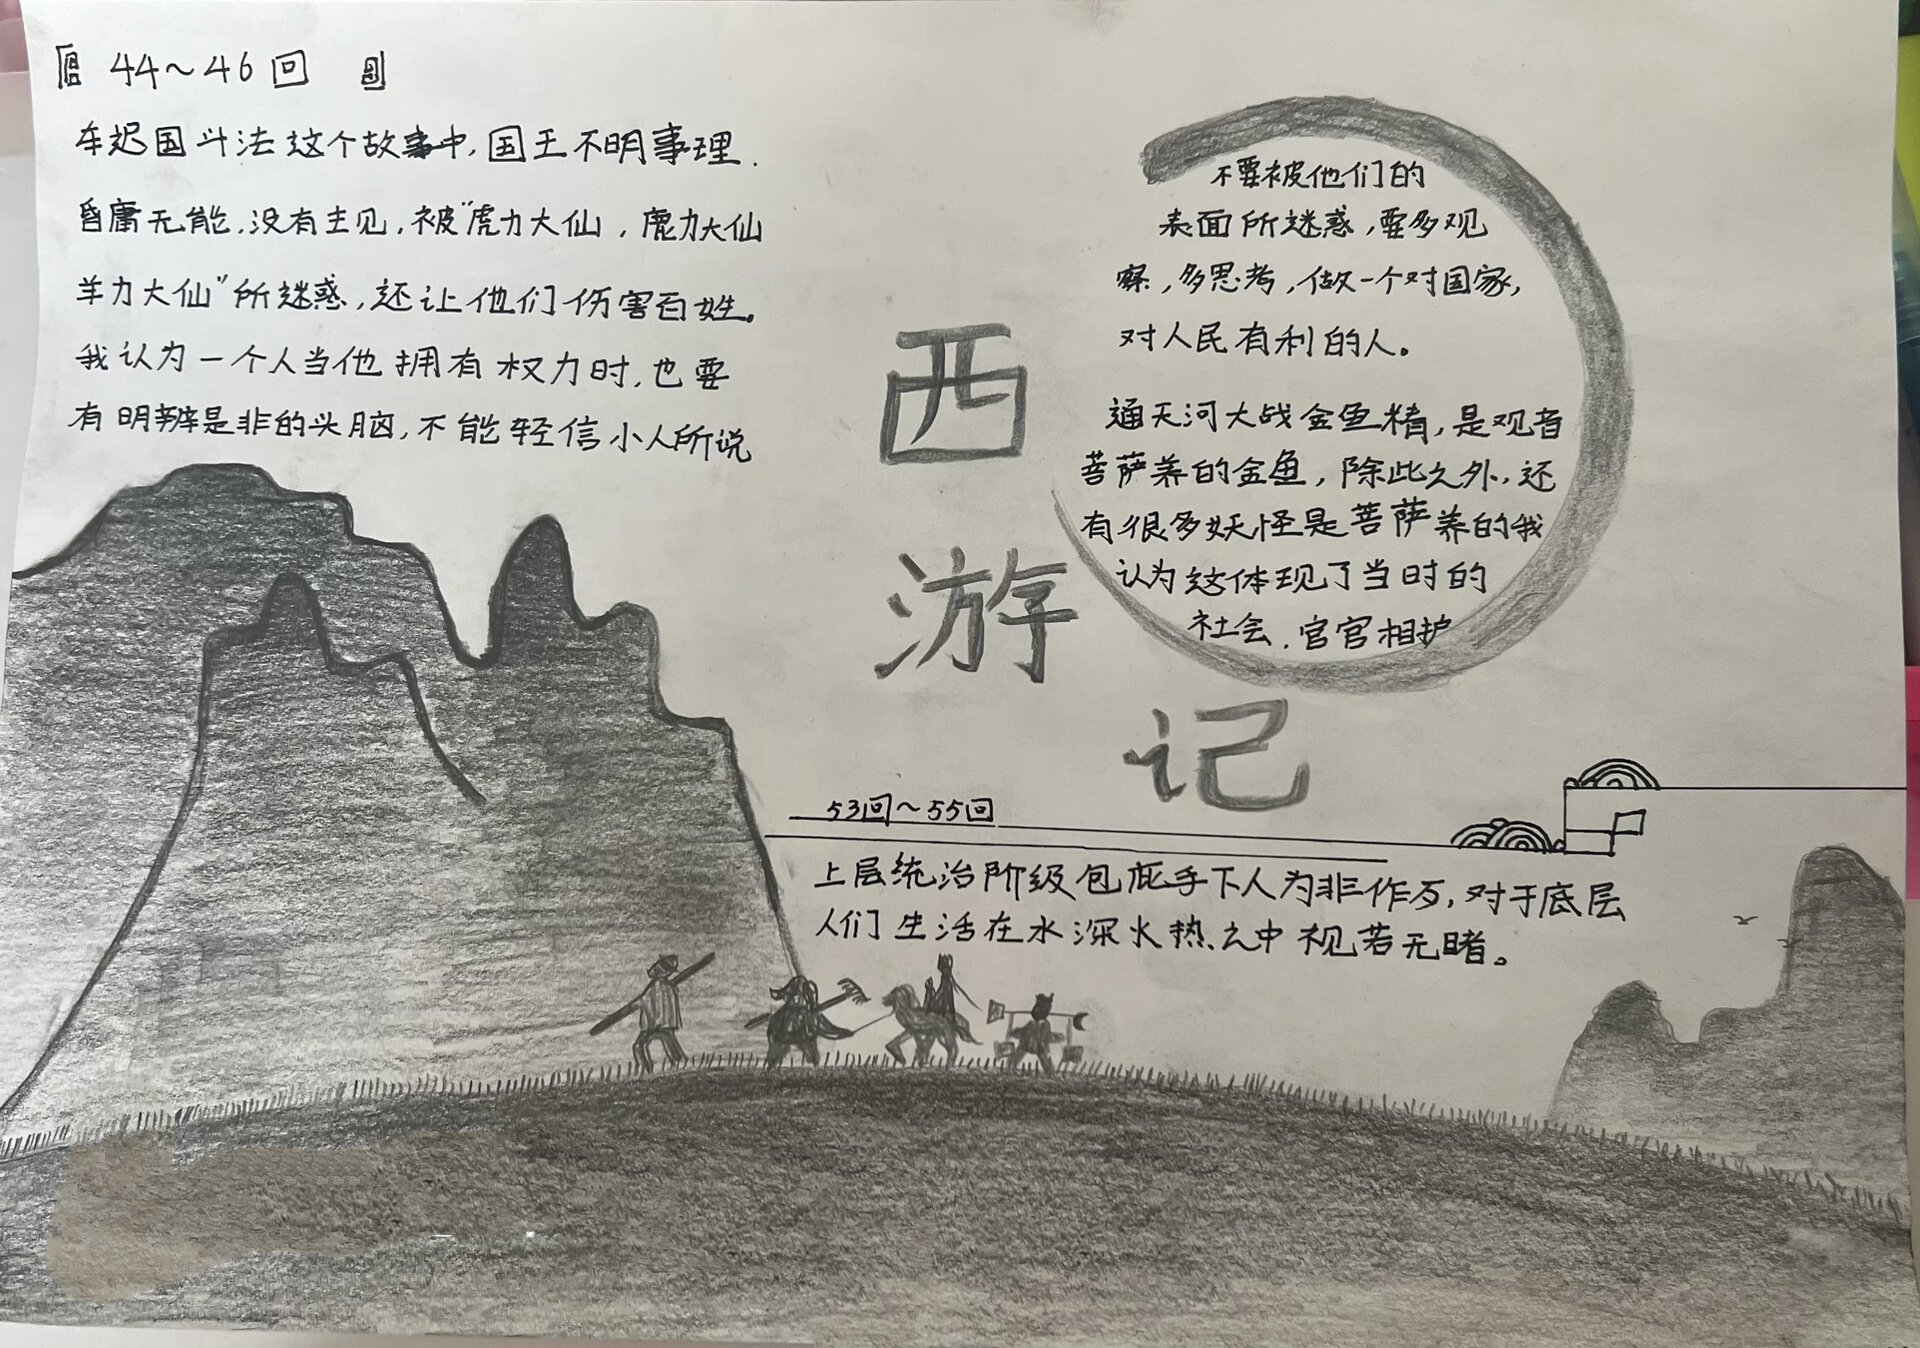 44~46回
车迟国斗法这个故事中,国王不明事理.
昏庸无能,没有主见,被"虎力大仙,鹿力大仙
羊力大仙"所迷惑,还让他们伤害百姓。
我认为一个人当他拥有权力时,也要
有明辨是非的头脑,不能轻信小人所说
西
游
记
不要被他们的
表面所迷惑,要多观
察,多思考,做一个对国家,
对人民有利的人。
通天河大战金鱼精,是观音
菩萨养的金鱼,除此之外,还
有很多妖怪是菩萨养的我
认为这体现了当时的
社会.官官相护
53回~55回
上层统治阶级包庇手下人为非作歹,对于底层
人们生活在水深火热之中视若无睹。